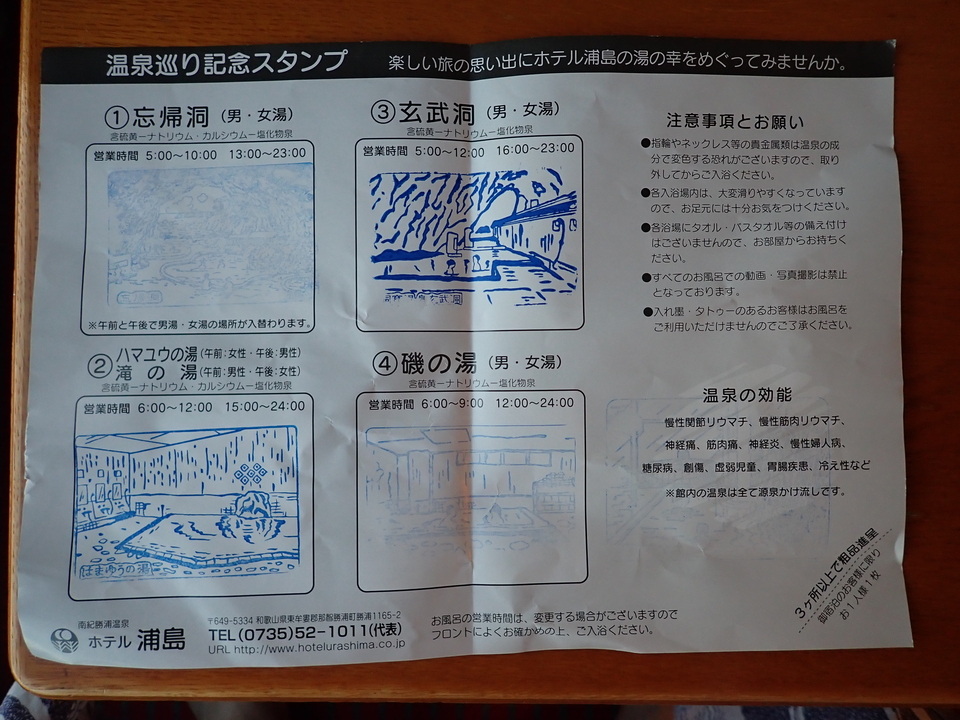 温泉巡り記念スタンプ 楽しい旅の思い出にホテル浦島の湯の幸をめぐってみませんか。
①忘帰洞（男・女湯）
含硫黄ーナトリウム・カルシウムー塩化物泉
営業時間 5:00〜10:00 13:00〜23:00
※午前と午後で男湯・女湯の場所が入替わります。
② ハマユウの湯（午前：女性・午後：男性）
滝の湯（午前：男性・午後：女性）
含硫黄ーナトリウム・カルシウムー塩化物泉
営業時間 6:00〜12:00 15:00〜24:00
はまゆうの湯
③玄武洞（男・女湯）
含硫黄ーナトリウムー塩化物泉
営業時間 5:00〜12:00 16:00〜23:00
玄武洞
④磯の湯（男・女湯）
含硫黄ーナトリウムー塩化物泉
営業時間 6:00〜9:00 12:00〜24:00
注意事項とお願い
●指輪やネックレス等の貴金属類は温泉の成
分で変色する恐れがございますので、取り
外してからご入浴ください。
●各入浴場内は、大変滑りやすくなっています
ので、お足元には十分お気をつけください。
●各浴場にタオル・バスタオル等の備え付け
はございませんので、お部屋からお持ちく
ださい。
●すべてのお風呂での動画・写真撮影は禁止
となっております。
●入れ墨・タトゥーのあるお客様はお風呂を
ご利用いただけませんのでご了承ください。
温泉の効能
慢性関節リウマチ、慢性筋肉リウマチ、
神経痛、筋肉痛、神経炎、慢性婦人病、
糖尿病、創傷、虚弱児童、胃腸疾患、冷え性など
※館内の温泉は全て源泉かけ流しです。
3ヶ所以上で粗品進呈
御宿泊のお客様に限り
お1人様1枚
南紀勝浦温泉
ホテル浦島
〒649-5334 和歌山県東牟婁郡那智勝浦町勝浦1165-2
TEL(0735)52-1011(代表)
URL http://www.hotelurashima.co.jp
お風呂の営業時間は、変更する場合がございますので
フロントによくお確かめの上、ご入浴ください。